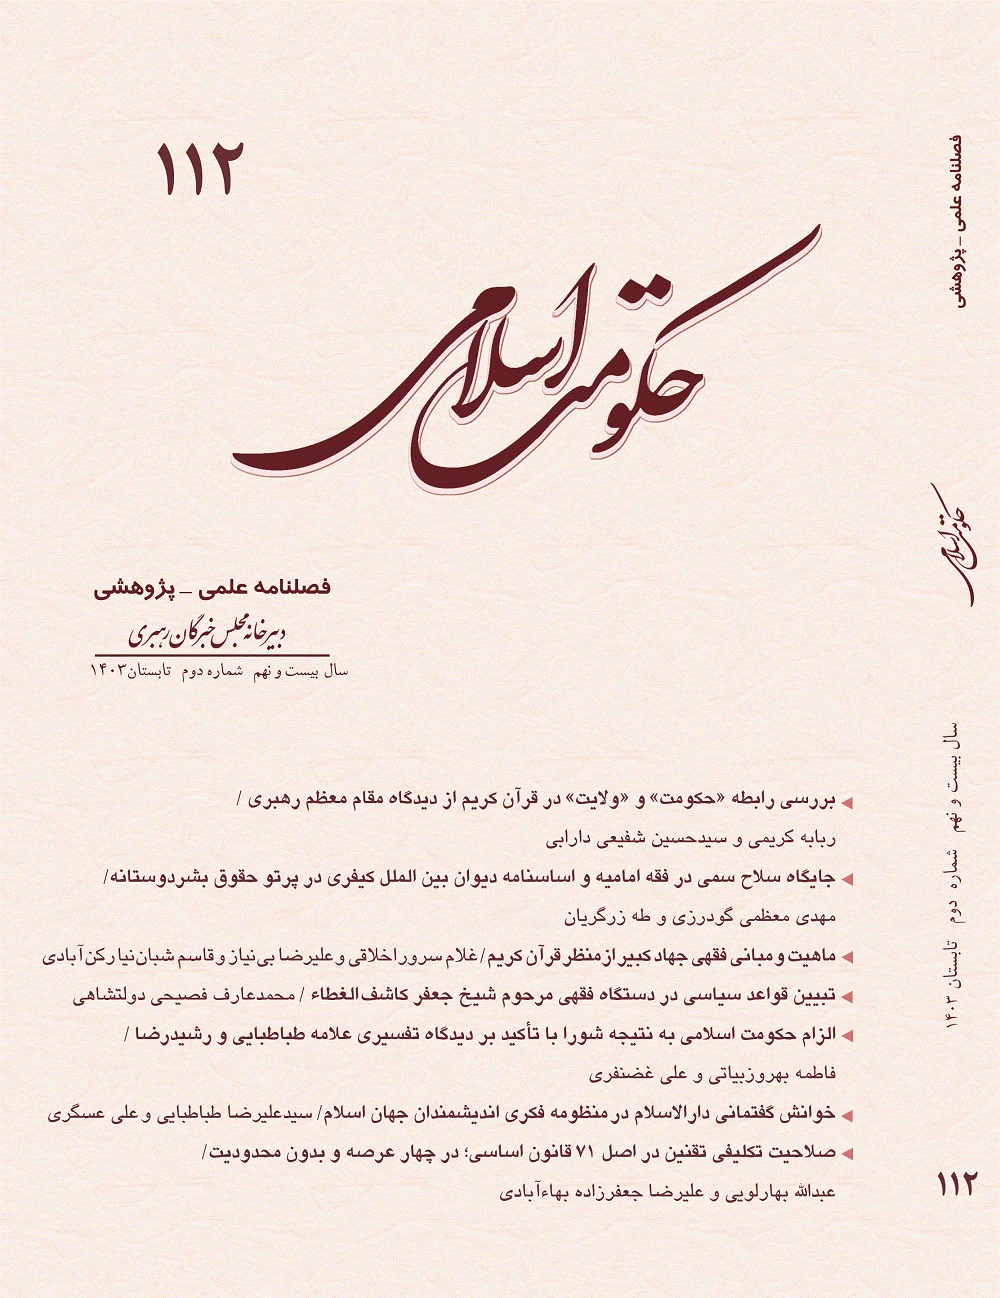 ۱۱۲
حکومت اسلامی
فصلنامه علمی _ پژوهشی
دبیرخانه مجلس خبرگان رهبری
سال بیست و نهم شماره دوم تابستان ۱۴۰۳
بررسی رابطه «حکومت» و «ولایت» در قرآن کریم از دیدگاه مقام معظم رهبری /
ربابه کریمی و سیدحسین شفیعی دارابی
جایگاه سلاح سمی در فقه امامیه و اساسنامه دیوان بین الملل کیفری در پرتو حقوق بشردوستانه/
مهدی معظمی گودرزی و طه زرگریان
ماهیت و مبانی فقهی جهاد کبیر از منظر قرآن کریم/ غلام سرور اخلاقی و علیرضا بی‌نیاز و قاسم شبان‌نیا رکن‌آبادی
تبیین قواعد سیاسی در دستگاه فقهی مرحوم شیخ جعفر کاشف‌الغطاء / محمدعارف فصیحی دولتشاهی
الزام حکومت اسلامی به نتیجه شورا با تأکید بر دیدگاه تفسیری علامه طباطبایی و رشیدرضا /
فاطمه بهروزبیاتی و علی غضنفری
خوانش گفتمانی دارالاسلام در منظومه فکری اندیشمندان جهان اسلام/ سیدعلیرضا طباطبایی و علی عسگری
صلاحیت تکلیفی تقنین در اصل ۷۱ قانون اساسی؛ در چهار عرصه و بدون محدودیت/
عبدالله بهارلویی و علیرضا جعفرزاده بهاءآبادی
فصلنامه علمی _ پژوهشی
حکومت اسلامی
سال بیست و نهم شماره دوم تابستان ۱۴۰۳
۱۱۲